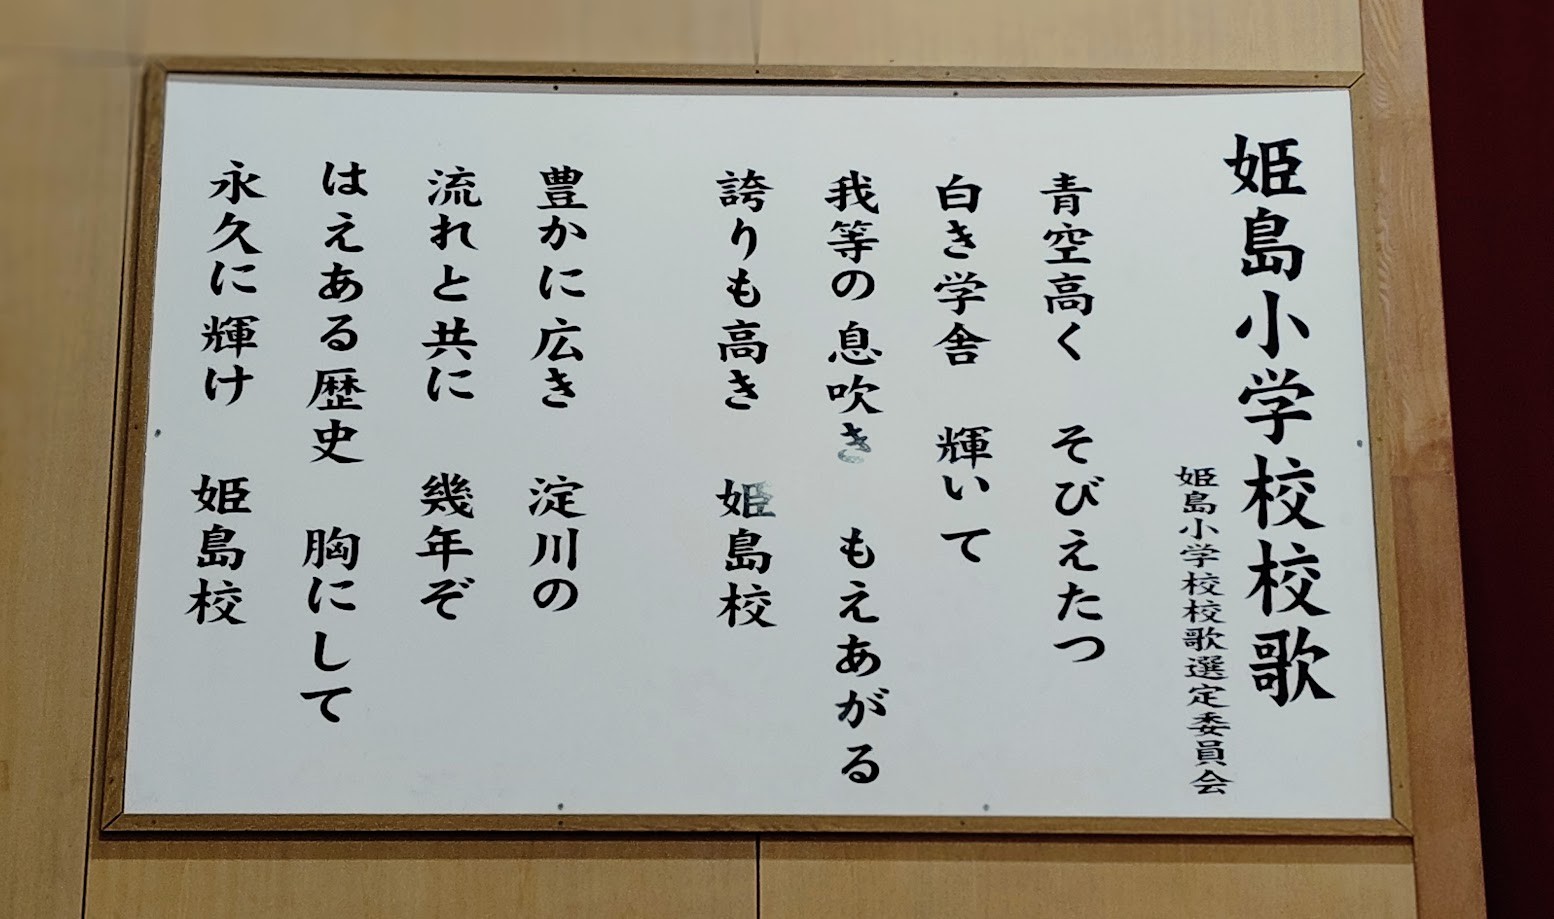 姫島小学校校歌
姫島小学校校歌選定委員会
青空高く　そびえたつ
白き学舎　輝いて
我等の息吹き　もえあがる
誇りも高き　姫島校
豊かに広き　淀川の
流れと共に　幾年ぞ
はえある歴史　胸にして
永久に輝け　姫島校